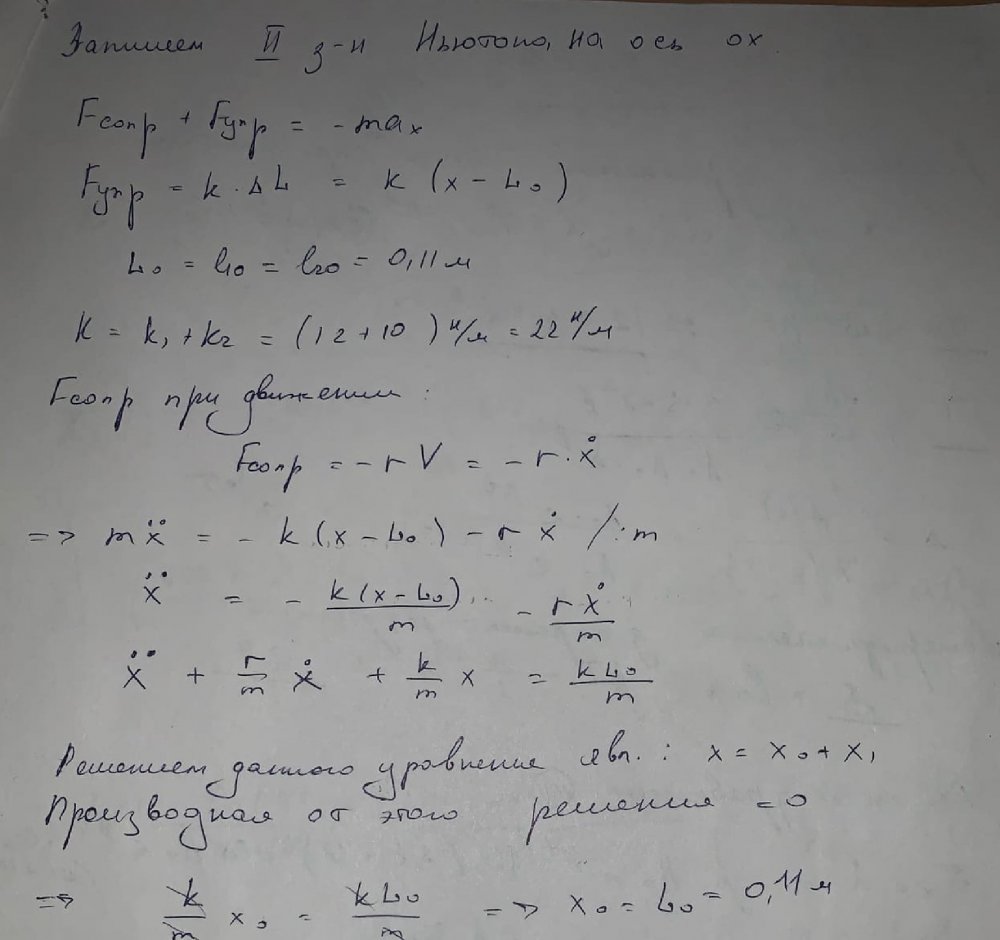 Запишем II з-н Ньютона, на ось ox
Fсопр + Fупр = - max
Fупр = k · ΔL = k (x - L0)
L0 = l10 = l20 = 0,11 м
K = k1 + k2 = (12 + 10) н/м = 22 н/м
Fсопр при движении :
Fсопр = - r V = - r · ẋ
=> mẍ = - k (x - L0) - r ẋ / : m
ẍ = - k(x - L0)/m - rẋ/m
ẍ + r/m ẋ + k/m x = kL0/m
Решением данного уравнения явл. : x = x0 + x1
Производная от этого решения = 0
=> k/m x0 = kL0/m => x0 = L0 = 0,11 м